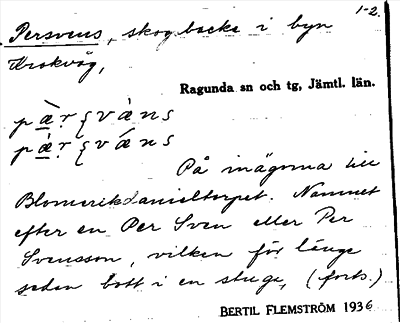 1-2.
Persvens, skogbacke i byn
Krokvåg,
Ragunda sn och tg, Jämtl. län.
På inägorna till
Blomerikdanieltorpet. Namnet
efter en Per Sven eller Per
Svensson, vilken för länge
sedan bott i en stuga, (forts.)
BERTIL FLEMSTRÖM 1936